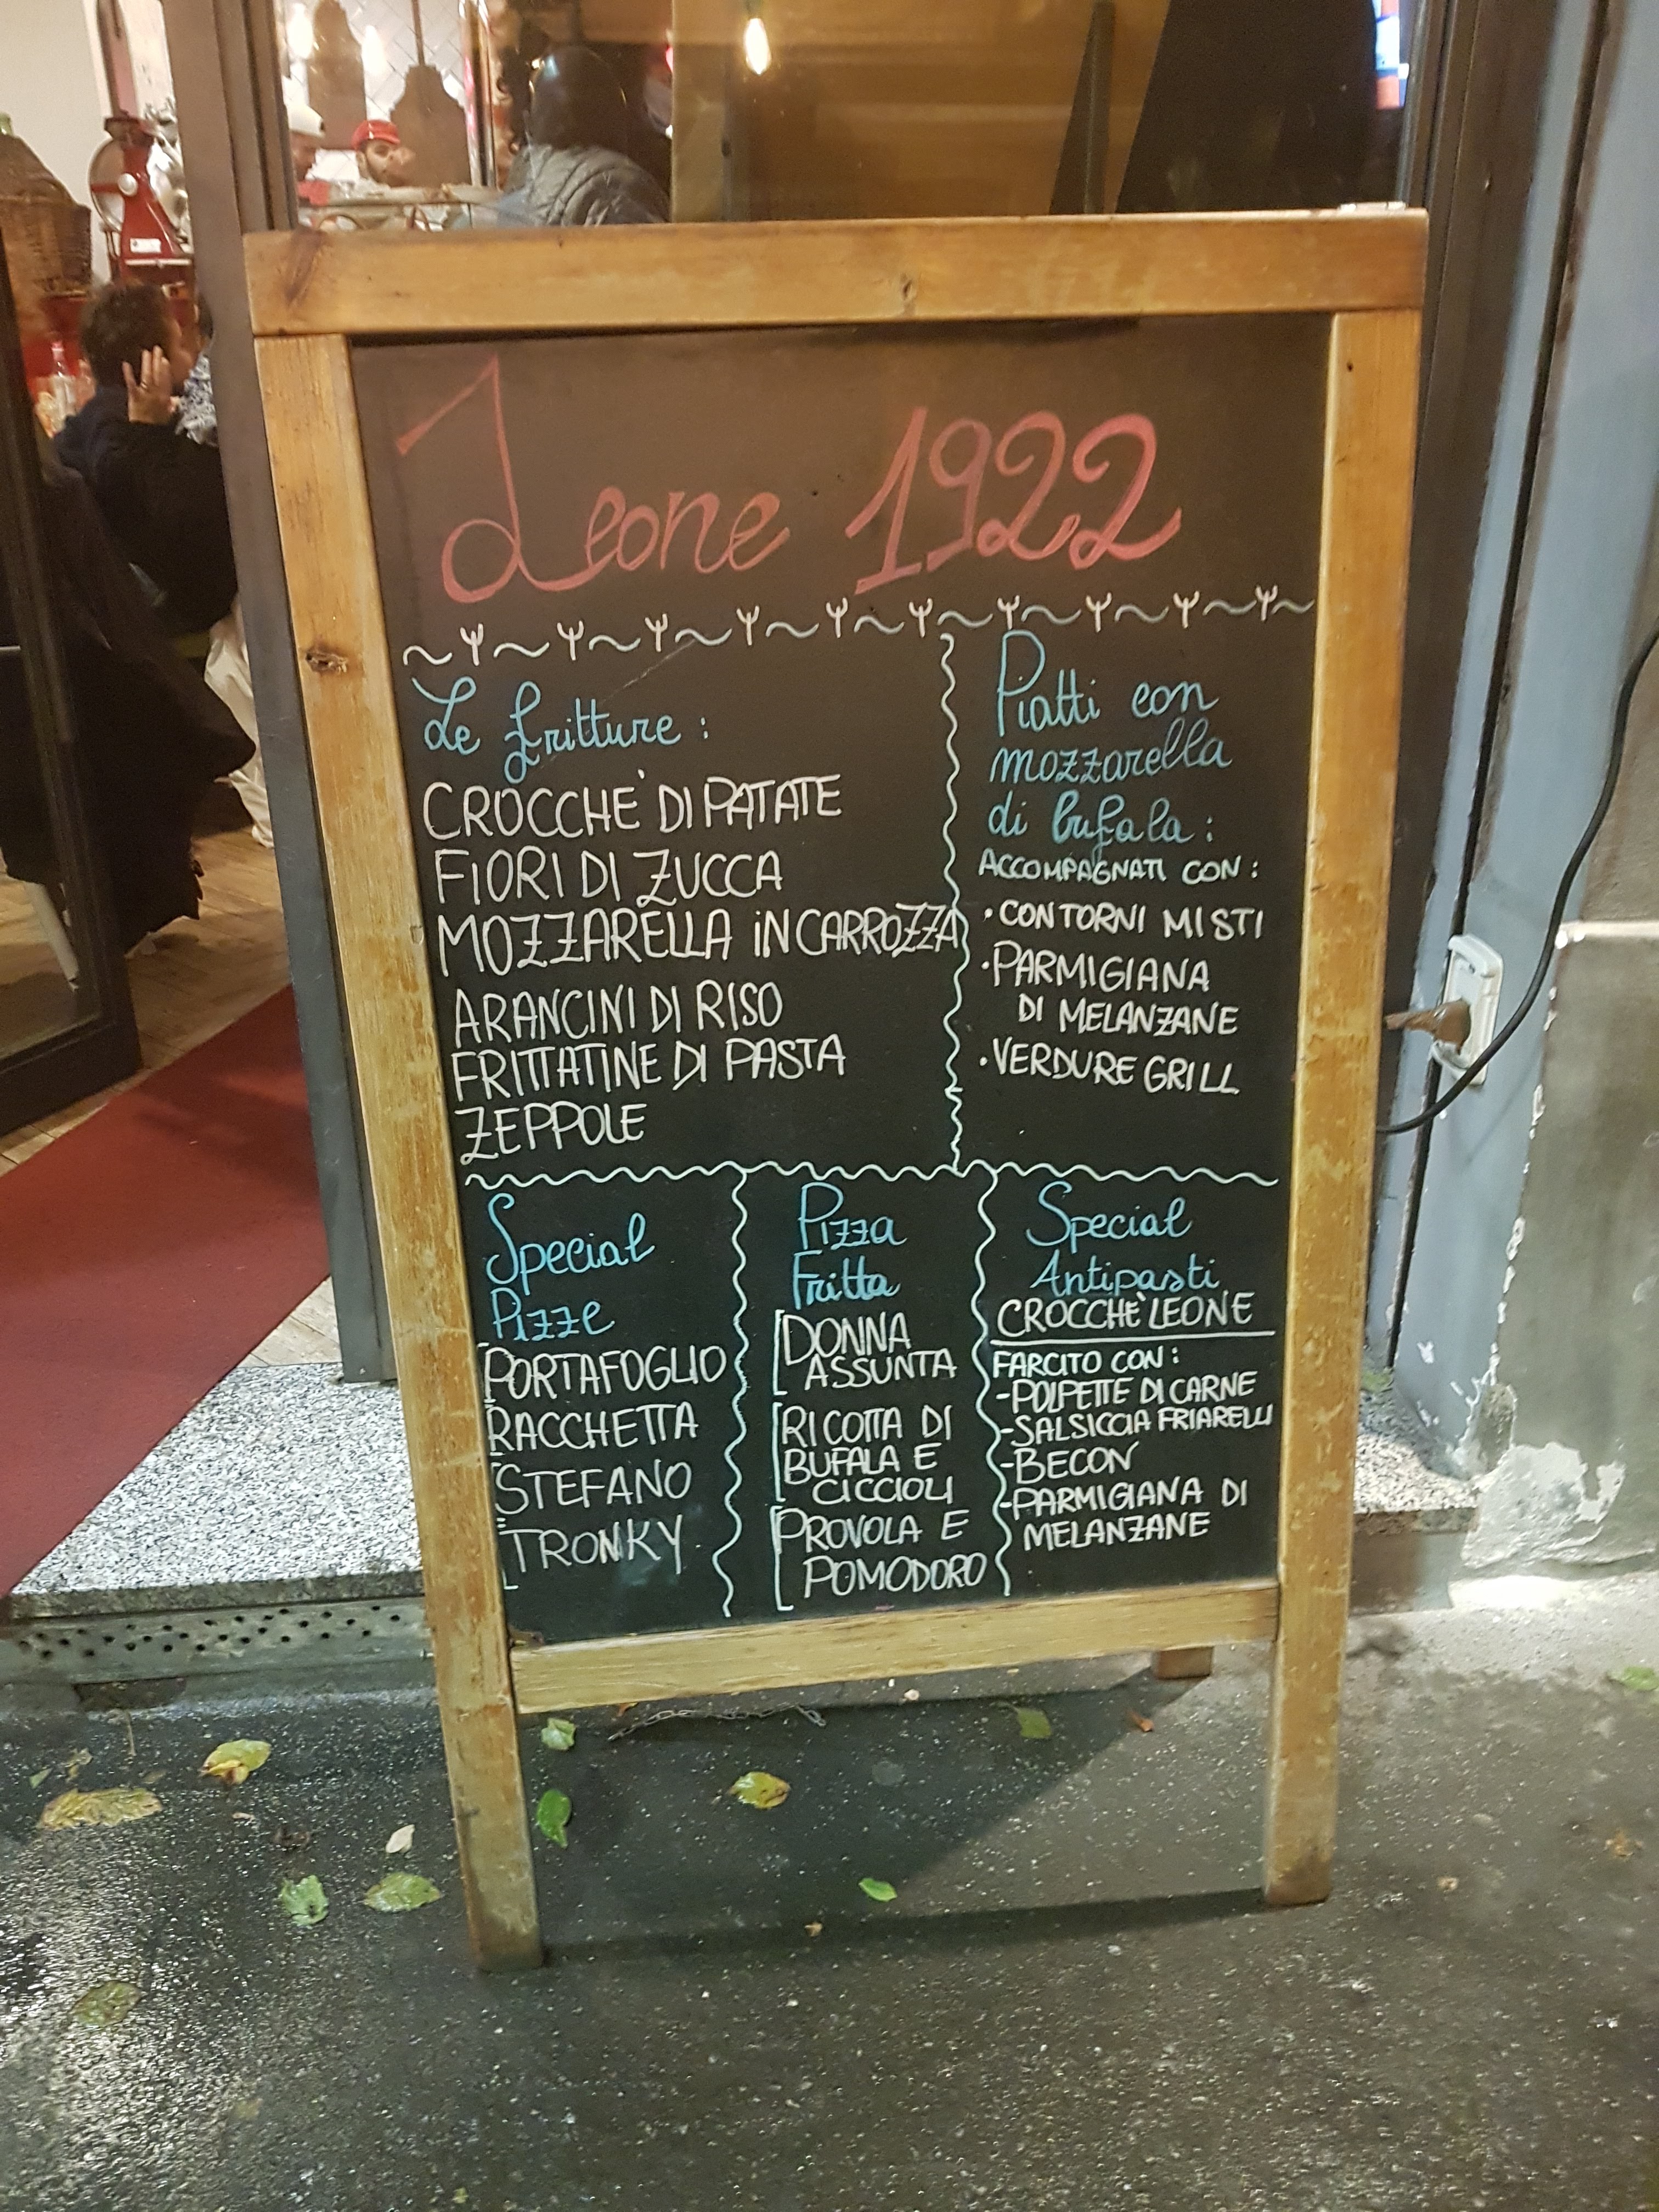 Leone 1922
Le fritture:
CROCCHÈ DI PATATE
FIORI DI ZUCCA
MOZZARELLA IN CARROZZA
ARANCINI DI RISO
FRITTATINE DI PASTA
ZEPPOLE
Piatti con
mozzarella
di bufala:
ACCOMPAGNATI CON:
•CONTORNI MISTI
•PARMIGIANA
DI MELANZANE
•VERDURE GRILL
Special
Pizze
PORTAFOGLIO
RACCHETTA
STEFANO
TRONKY
Pizza
Fritta
DONNA
ASSUNTA
RICOTTA DI
BUFALA E
CICCIOLI
PROVOLA E
POMODORO
Special
Antipasti
CROCCHÈ LEONE
FARCITO CON:
-POLPETTE DI CARNE
-SALSICCIA FRIARELLI
-BECON
-PARMIGIANA DI
MELANZANE